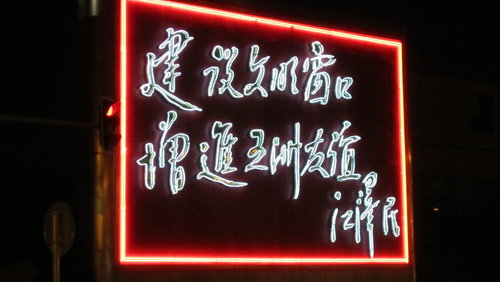 建设文明窗口
增進五洲友谊
江澤民